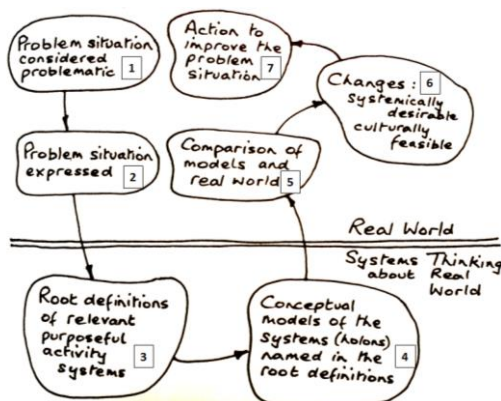 Problem situation
considered
problematic 1
Problem situation
expressed 2
Root definitions
of relevant
purposeful
activity
systems 3
Conceptual
models of the
systems (holons)
named in the
root definitions 4
Comparison of
models and
real world
5
Changes : 6
systemically
desirable
culturally
feasible
Action to
improve the
problem
situation
7
Real World
Systems Thinking
about Real
World